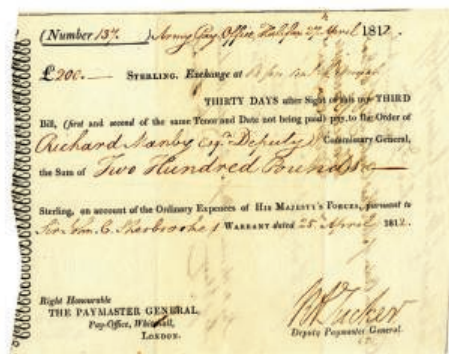 (Number 137.) Army Pay Office, Halifax 27 April 1812.
£200.— STERLING. Exchange at
THIRTY DAYS after Sight of this my THIRD
Bill, (first and second of the same Tenor and Date not being paid) pay, to the Order of
Richard Nanby Esqr. Deputy Commissary General,
the Sum of Two Hundred Pounds
Sterling, on account of the Ordinary Expences of HIS MAJESTY'S FORCES, pursuant to
Sir John C. Sherbrooke's WARRANT dated 25th April 1812.
Right Honourable
THE PAYMASTER GENERAL,
Pay-Office, Whitehall,
LONDON.
Tucker
Deputy Paymaster General.